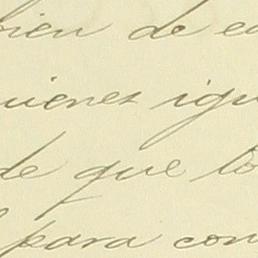 bien de e
quienes igu
de que lo
para con